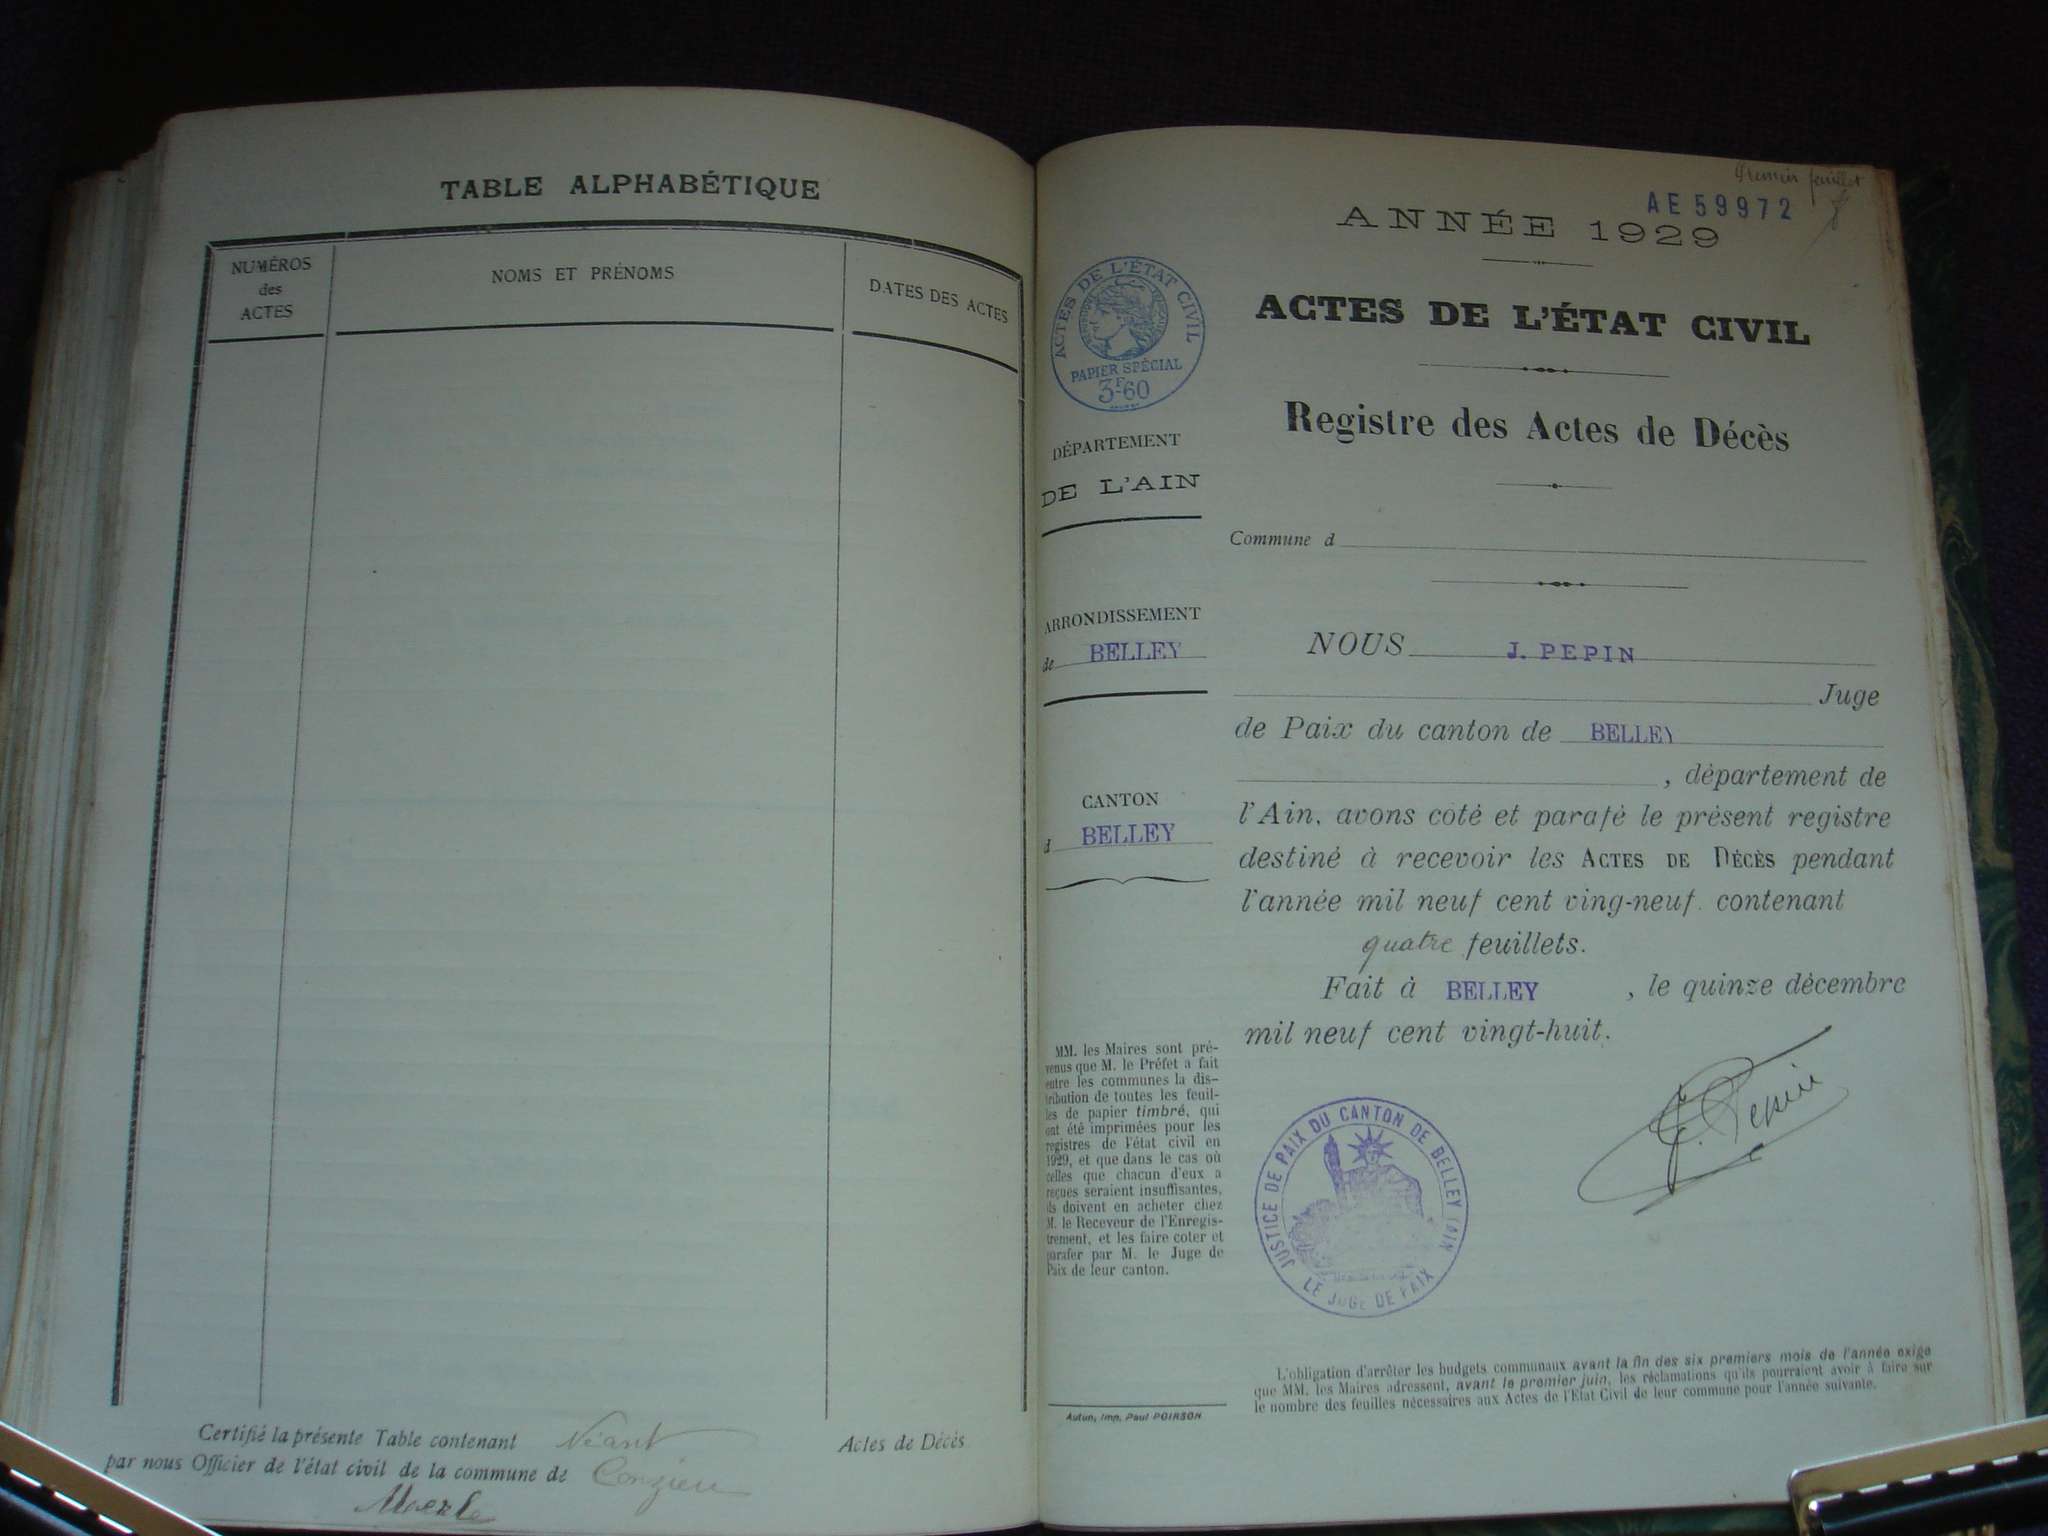 TABLE ALPHABÉTIQUE
NUMÉROS
des
ACTES
NOMS ET PRÉNOMS
DATES DES ACTES
Certifié la présente Table contenant Néant Actes de Décès
par nous Officier de l'état civil de la commune de Conzieu
Premier feuillet
AE 59972
ANNÉE 1929
ACTES DE L'ÉTAT CIVIL
PAPIER SPÉCIAL
3F60
ACTES DE L'ÉTAT CIVIL
Registre des Actes de Décès
DÉPARTEMENT
DE L'AIN
Commune d
ARRONDISSEMENT
de BELLEY
CANTON
d BELLEY
NOUS J. PEPIN
Juge
de Paix du canton de BELLEY
, département de
l'Ain, avons coté et parafé le présent registre
destiné à recevoir les ACTES DE DÉCÈS pendant
l'année mil neuf cent ving-neuf. contenant
quatre feuillets.
Fait à BELLEY , le quinze décembre
mil neuf cent vingt-huit.
J. Pepin
JUSTICE DE PAIX DU CANTON DE BELLEY (AIN)
LE JUGE DE PAIX
MM. les Maires sont pré-
venus que M. le Préfet a fait
entre les communes la dis-
tribution de toutes les feuil-
les de papier timbré, qui
ont été imprimées pour les
registres de l'état civil en
1929, et que dans le cas où
celles que chacun d'eux a
reçues seraient insuffisantes,
ils doivent en acheter chez
M. le Receveur de l'Enregis-
trement, et les faire coter et
parafer par M. le Juge de
Paix de leur canton.
Autun, Imp. Paul POIRSON
L'obligation d'arrêter les budgets communaux avant la fin des six premiers mois de l'année exige
que MM. les Maires adressent, avant le premier juin, les réclamations qu'ils pourraient avoir à faire sur
le nombre des feuilles nécessaires aux Actes de l'Etat Civil de leur commune pour l'année suivante.